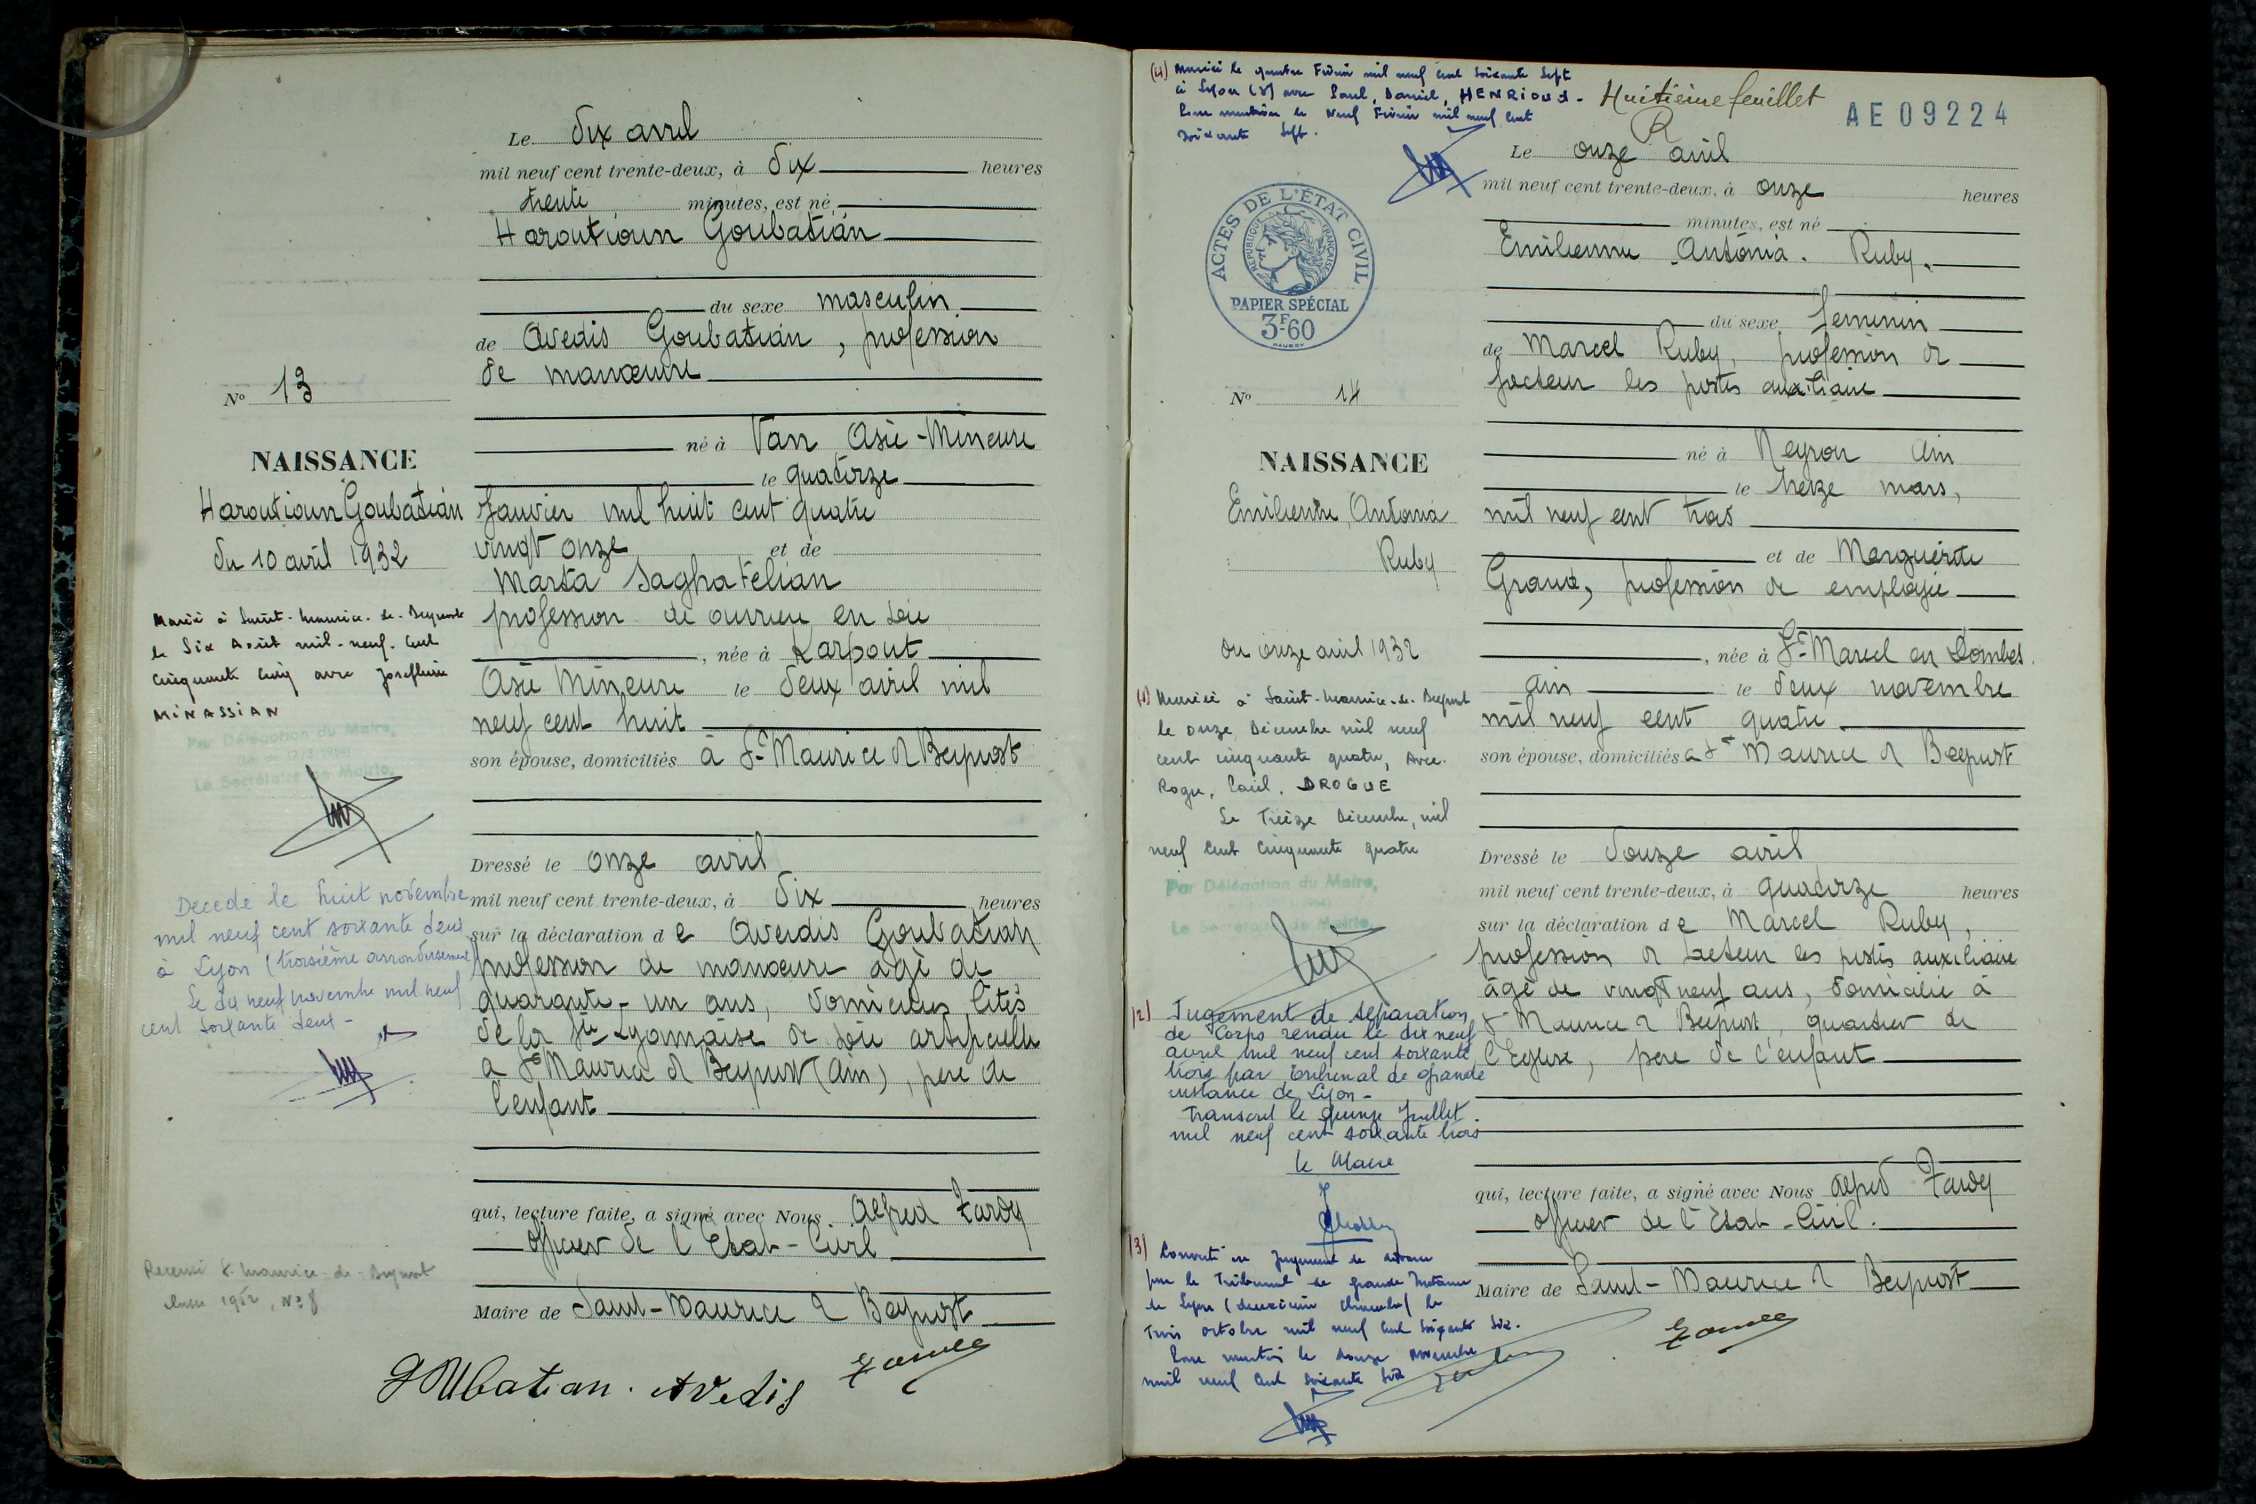 Le dix avril
mil neuf cent trente-deux, à dix heures
trente minutes, est né
Haroutioun Goubatian
du sexe masculin
de Avedis Goubatian, profession
de manœuvre
né à Van Asie-Mineure
le quatorze
Janvier mil huit cent quatre
vingt onze et de
Marta Saghatelian
profession de ouvrière en soie
, née à Karpout
Asie Mineure le deux avril mil
neuf cent huit
son épouse, domiciliés à St Maurice de Beynost
Dressé le onze avril
mil neuf cent trente-deux, à dix heures
sur la déclaration de Avedis Goubatian
profession de manœuvre agé de
quarante-un ans, domicilié cités
de la Sté Lyonnaise de soie artificielle
a St Maurice de Beynost (Ain), père de
l'enfant
qui, lecture faite, a signé avec Nous Alfred Tardy
officier de l'Etat-Civil
Maire de Saint-Maurice de Beynost
Avedis
No 13
NAISSANCE
Haroutioun Goubatian
du 10 avril 1932
Marié à Saint-Maurice-de-Beynost
le Six Août mil-neuf-cent
cinquante cinq avec Josephine
MINASSIAN
Par Délégation du Maire,
Le Secrétaire de Mairie,
Decédé le huit novembre
mil neuf cent soixante deux
à Lyon (troisième arrondissement)
Le dix neuf novembre mil neuf
cent soixante deux -
Recensé St Maurice-de-Beynost
classe 1952, No 8
(4) Mariée le quatre Février mil neuf cent soixante sept
à Lyon (8) avec Paul, Daniel, HENRIOUD -
Pour mention le Neuf Février mil neuf cent
soixante sept.
Huitième feuillet
AE 09224
ACTES DE L'ÉTAT CIVIL
RÉPUBLIQUE FRANÇAISE
PAPIER SPÉCIAL
3F60
Le onze avril
mil neuf cent trente-deux, à onze heures
minutes, est né
Emilienne Antonia. Ruby.
du sexe féminin
de Marcel Ruby, profession de
facteur des postes auxiliaire
né à Neyron Ain
le treize mars,
mil neuf cent trois
et de Marguerite
Grand, profession de employée
, née à St Marcel en Dombes.
Ain le deux novembre
mil neuf cent quatre
son épouse, domiciliés a St Maurice de Beynost
Dressé le douze avril
mil neuf cent trente-deux, à quatorze heures
sur la déclaration de Marcel Ruby,
profession de facteur des postes auxiliaire
âgé de vingt neuf ans, domicilié à
St Maurice de Beynost, quartier de
l'Eglise, père de l'enfant
qui, lecture faite, a signé avec Nous Alfred Tardy
officier de l'Etat-Civil.
Maire de Saint-Maurice de Beynost
No 14
NAISSANCE
Emilienne, Antonia
Ruby
du onze avril 1932
(1) Mariée à Saint-Maurice-de-Beynost
le onze Décembre mil neuf
cent cinquante quatre, avec
Roger, DROGUE
Le Treize Décembre, mil
neuf cent cinquante quatre
Par Délégation du Maire,
Le Secrétaire de Mairie,
(2) Jugement de séparation
de Corps rendu le dix neuf
avril mil neuf cent soixante
trois par Tribunal de grande
instance de Lyon -
Transcrit le quinze Juillet
mil neuf cent soixante trois
le Maire
(3) Converti en jugement de divorce
par le Tribunal de grande Instance
de Lyon (deuxième chambre) le
trois octobre mil neuf cent soixante six.
Pour mention le douze novembre
mil neuf cent soixante six